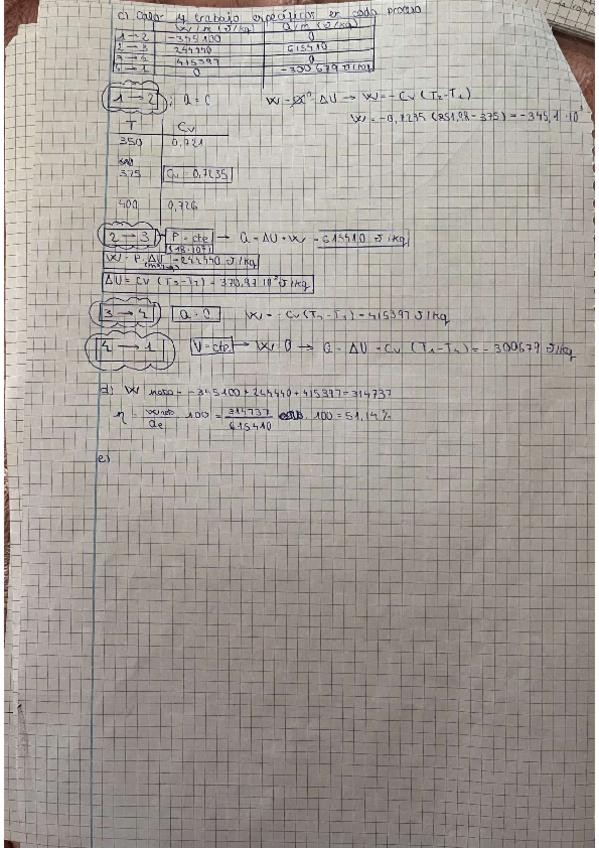 c) Calor y trabajo específicos en cada proceso
W/m (J/kg) Q/m (J/kg)
1→2 -345100 0
2→3 244440 615410
3→4 415397 0
4→1 0 -300679 J/kg
1→2 ; Q=0 W=-ΔU → W=-Cv(T2-T1)
W=-0,7235(851,98-375)=-345,1·10³
T Cv
350 0,721
375 Cv=0,7235
400 0,726
2→3 P=cte → Q=ΔU+W=615410 J/kg
W=P·ΔU =244440 J/kg
ΔU=Cv(T3-T2)=370,97·10³J/kg
3→4 Q=0 W=-Cv(T4-T3)=415397 J/kg
4→1 V=cte → W=0 → Q=ΔU=Cv(T1-T4)=-300679 J/kg
d) W neto=-345100+244440+415397=314737
η=Wneto/Qe 100=314737/615410 100=51,14%
e)